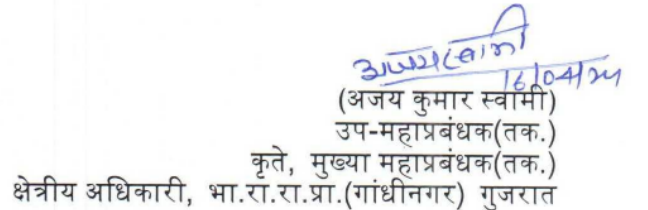 अजय स्वामी
16/04/24
(अजय कुमार स्वामी)
उप-महाप्रबंधक(तक.)
कृते, मुख्या महाप्रबंधक(तक.)
क्षेत्रीय अधिकारी, भा.रा.रा.प्रा.(गांधीनगर) गुजरात